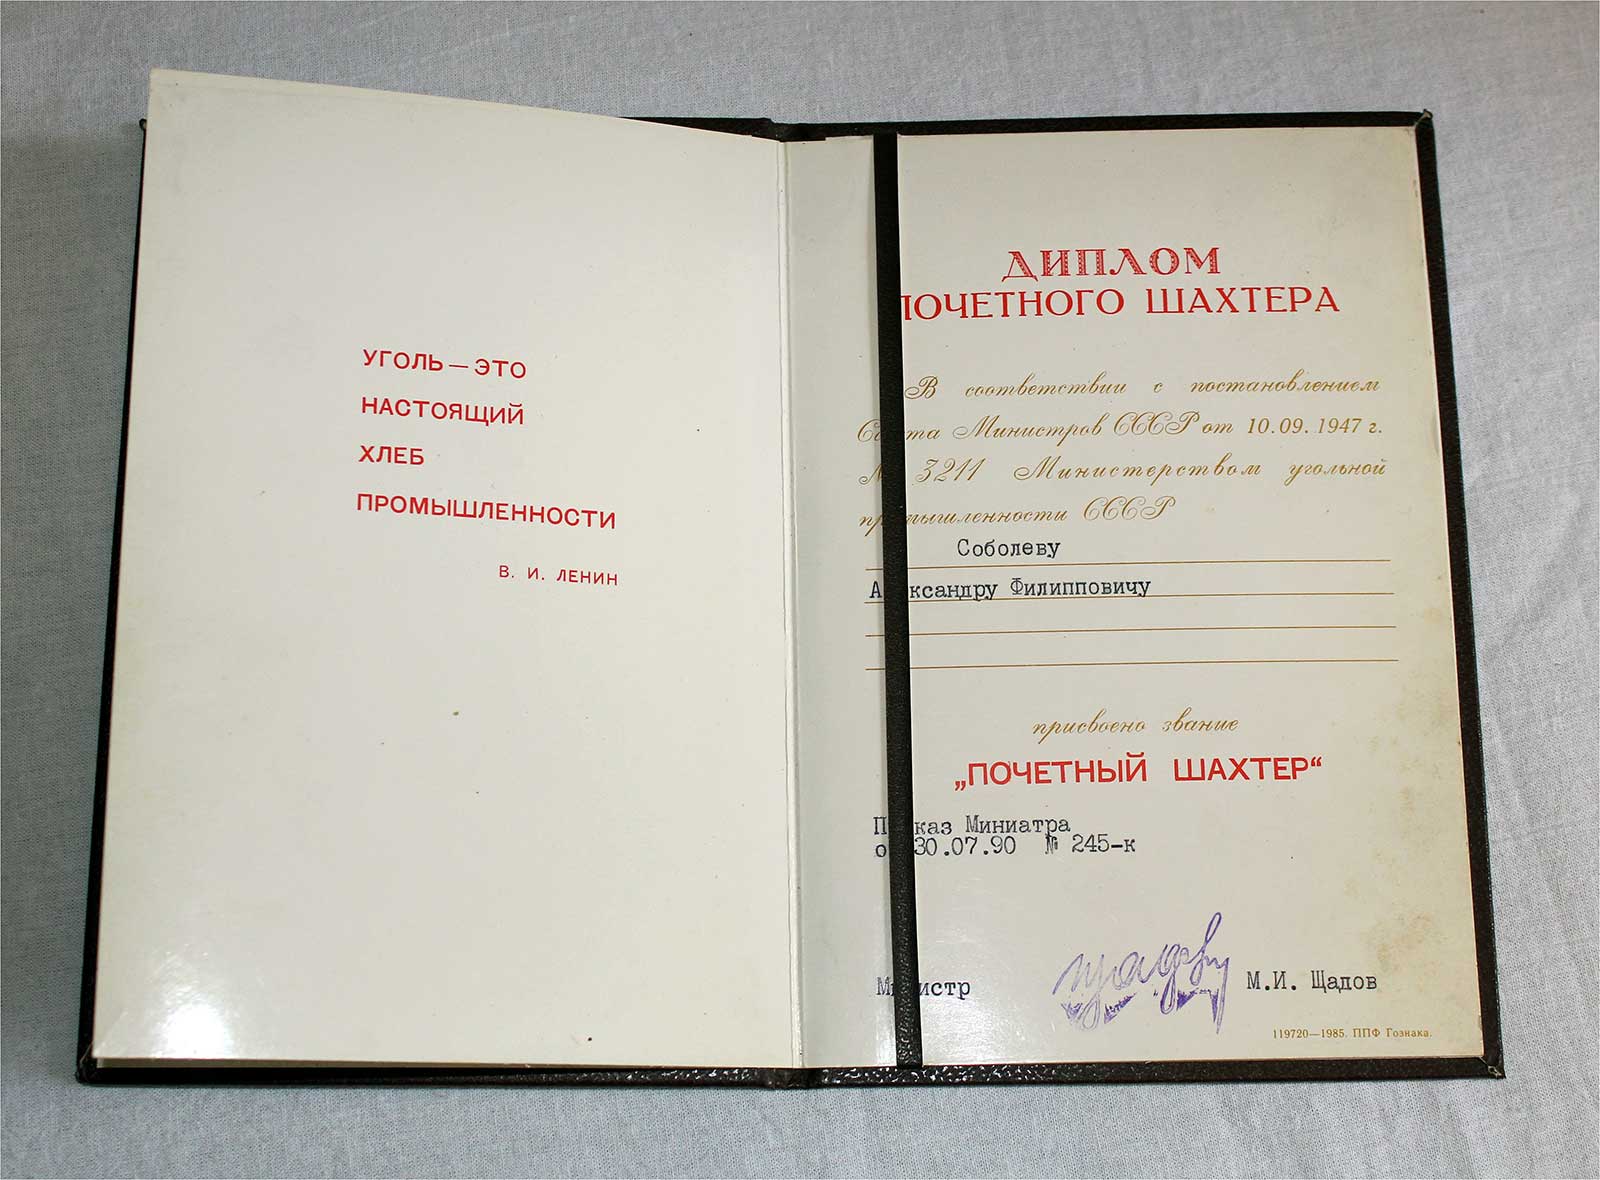 УГОЛЬ — ЭТО
НАСТОЯЩИЙ
ХЛЕБ
ПРОМЫШЛЕННОСТИ
В. И. ЛЕНИН
ДИПЛОМ
ПОЧЕТНОГО ШАХТЕРА
В соответствии с постановлением
Совета Министров СССР от 10.09.1947 г.
№ 3211 Министерством угольной
промышленности СССР
Соболеву
Александру Филипповичу
присвоено звание
„ПОЧЕТНЫЙ ШАХТЕР“
Приказ Миниатра
от 30.07.90 № 245-к
Министр М.И. Щадов
119720—1985. ППФ Гознака.